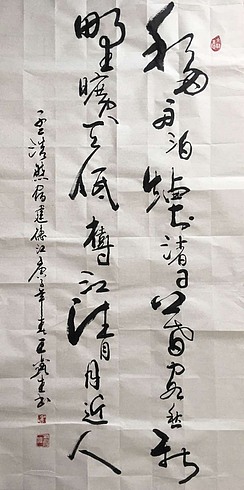 移舟泊烟渚日暮客愁新
野旷天低树江清月近人
孟浩然宿建德江庚子年春王